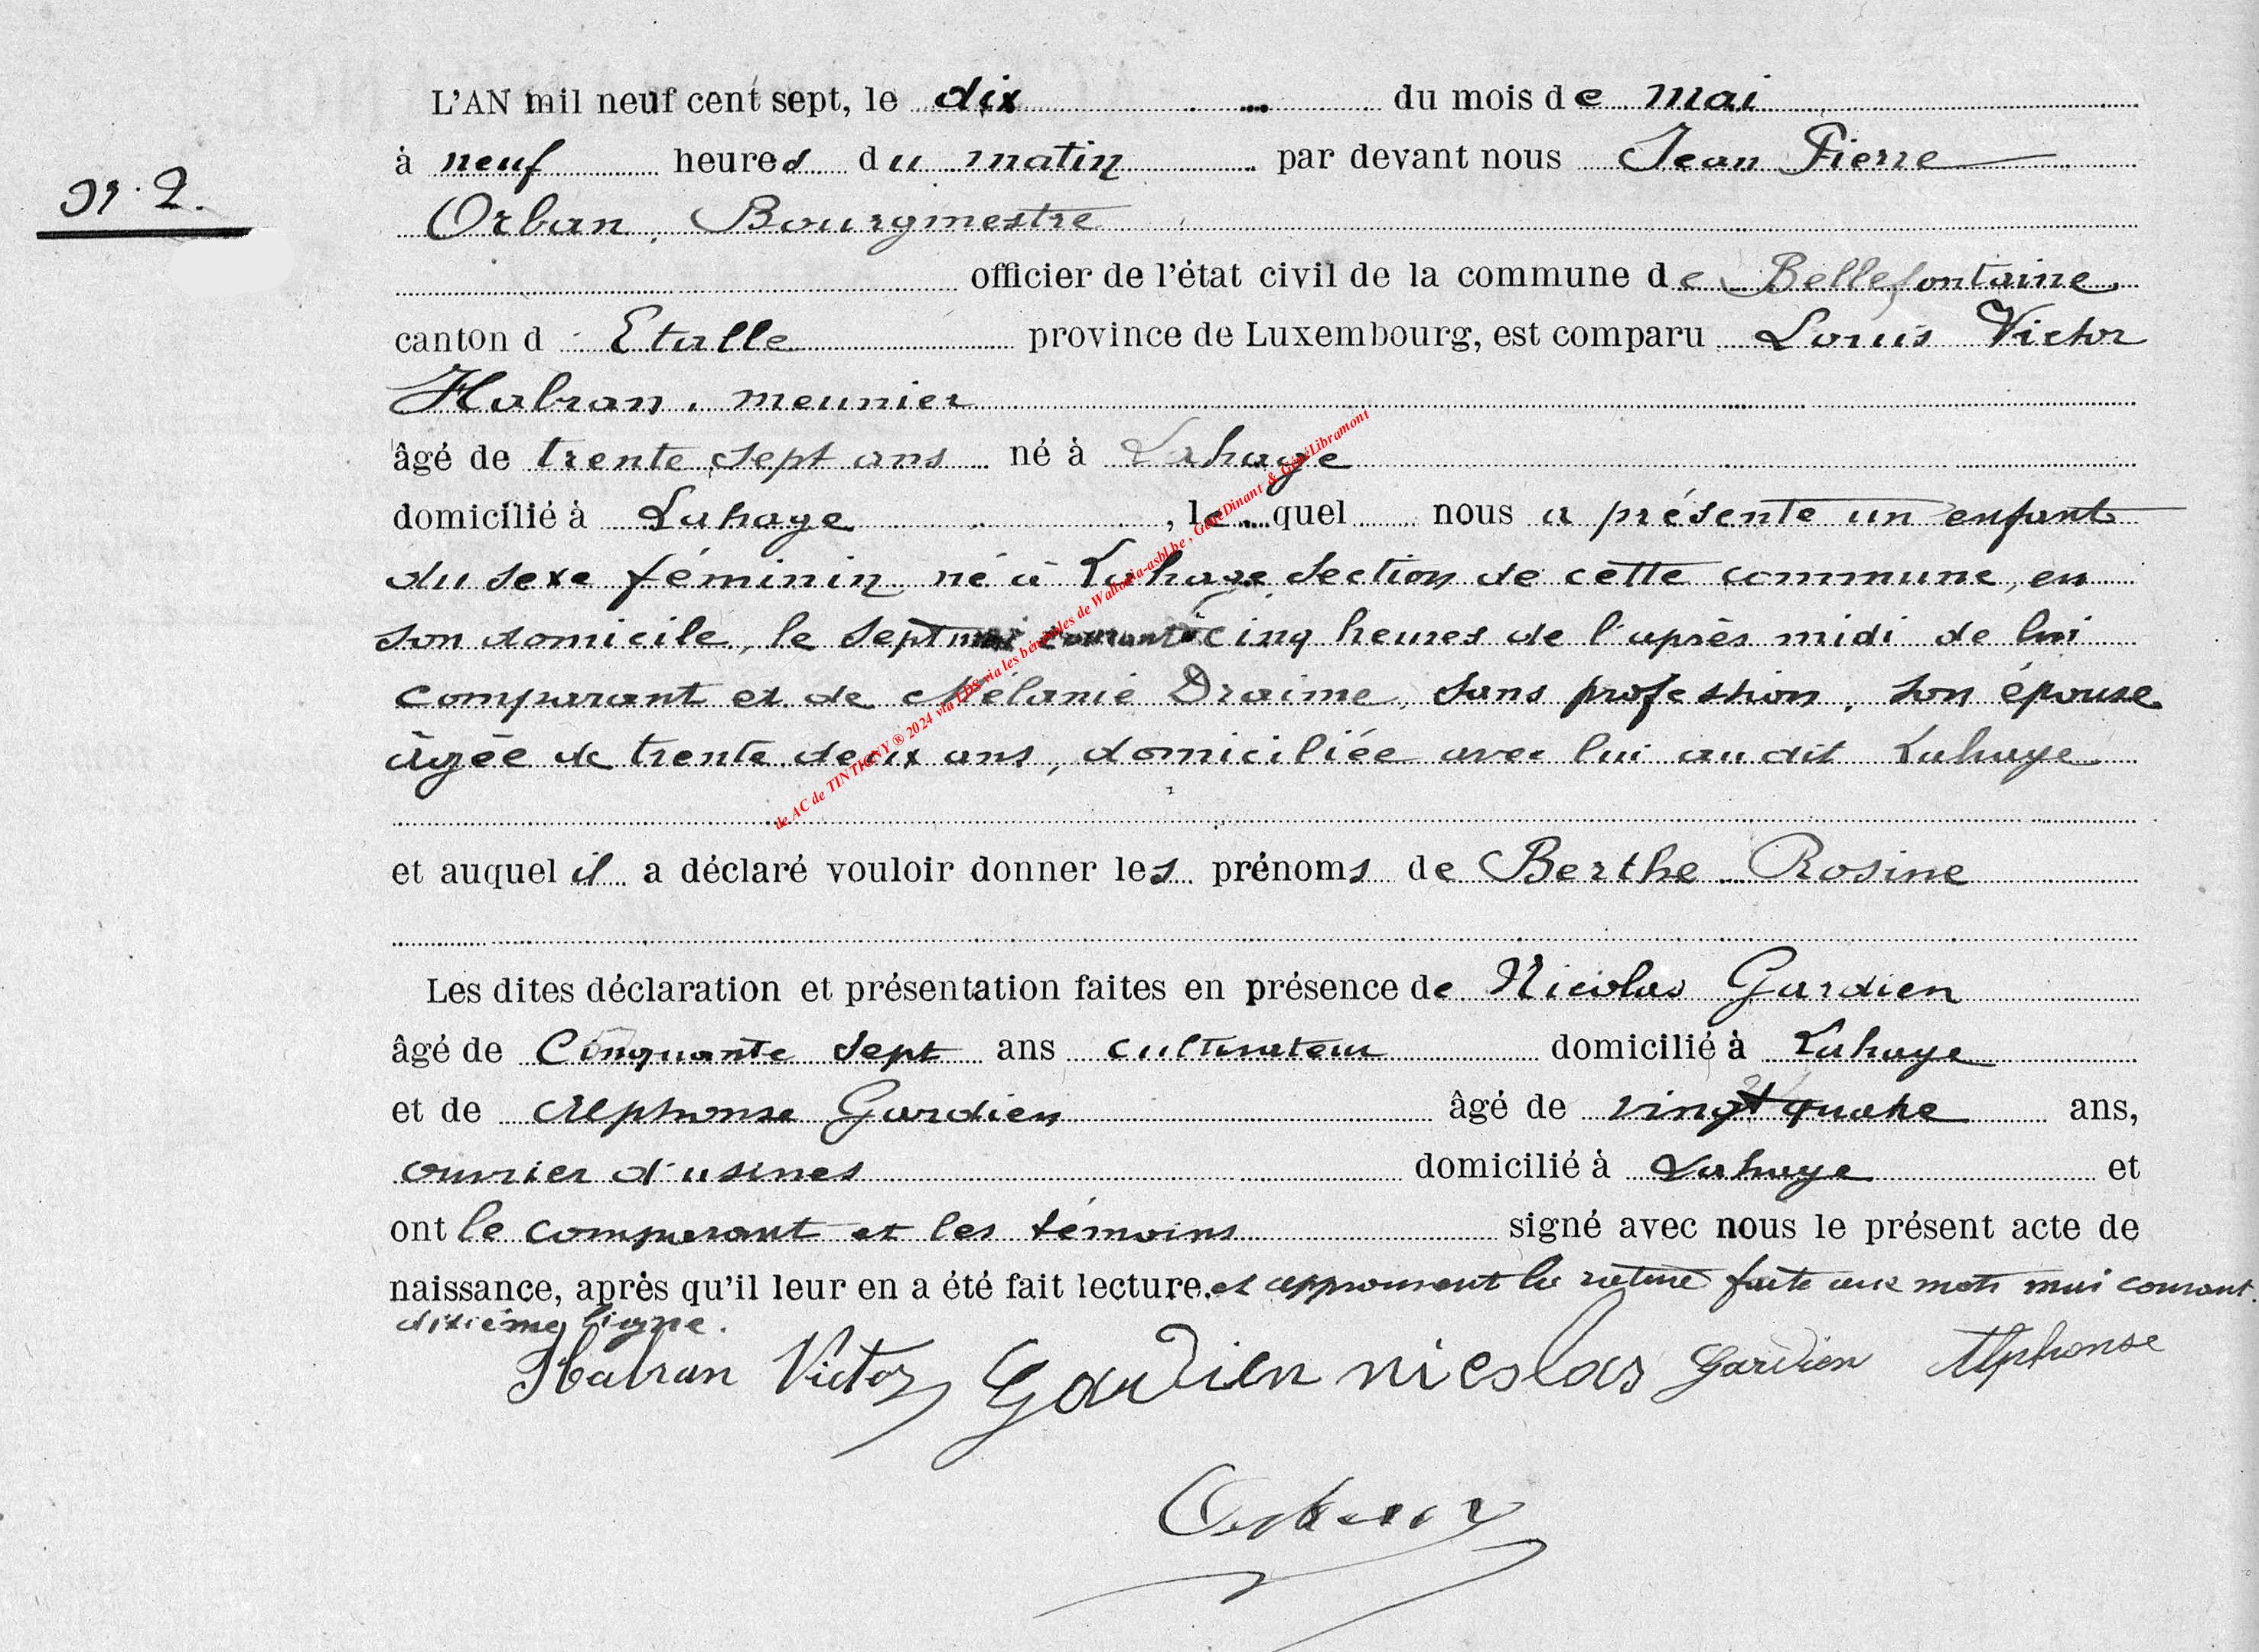 L'AN mil neuf cent sept, le dix du mois de mai
à neuf heures du matin par devant nous Jean Pierre
N. 2.
Orban, Bourgmestre
officier de l'état civil de la commune de Bellefontaine,
canton d Etalle province de Luxembourg, est comparu Louis Victor
Habran, meunier
âgé de trente sept ans né à Lahage
domicilié à Lahage, lequel nous a présenté un enfant
du sexe féminin né à Lahage section de cette commune, en
son domicile, le sept mai courant à cinq heures de l'après midi de lui
comparant et de Mélanie Draime, sans profession, son épouse
âgée de trente deux ans, domiciliée avec lui au dit Lahage
et auquel il a déclaré vouloir donner les prénoms de Berthe Rosine
Les dites déclaration et présentation faites en présence de Nicolas Gardien
âgé de Cinquante sept ans cultivateur domicilié à Lahage
et de Alphonse Gardien âgé de vingt quatre ans,
ouvrier d'usines domicilié à Lahage et
ont le comparant et les témoins signé avec nous le présent acte de
naissance, après qu'il leur en a été fait lecture. et approuvent la rature faite aux mots mai courant.
dixième ligne.
Habran Victor Gardien nicolas Gardien Alphonse
Orban
de AC de TINTIGNY ® 2024 via LDS via les bénévoles de Wallonia-asbl.be , GénéDinant & GénéLibramont